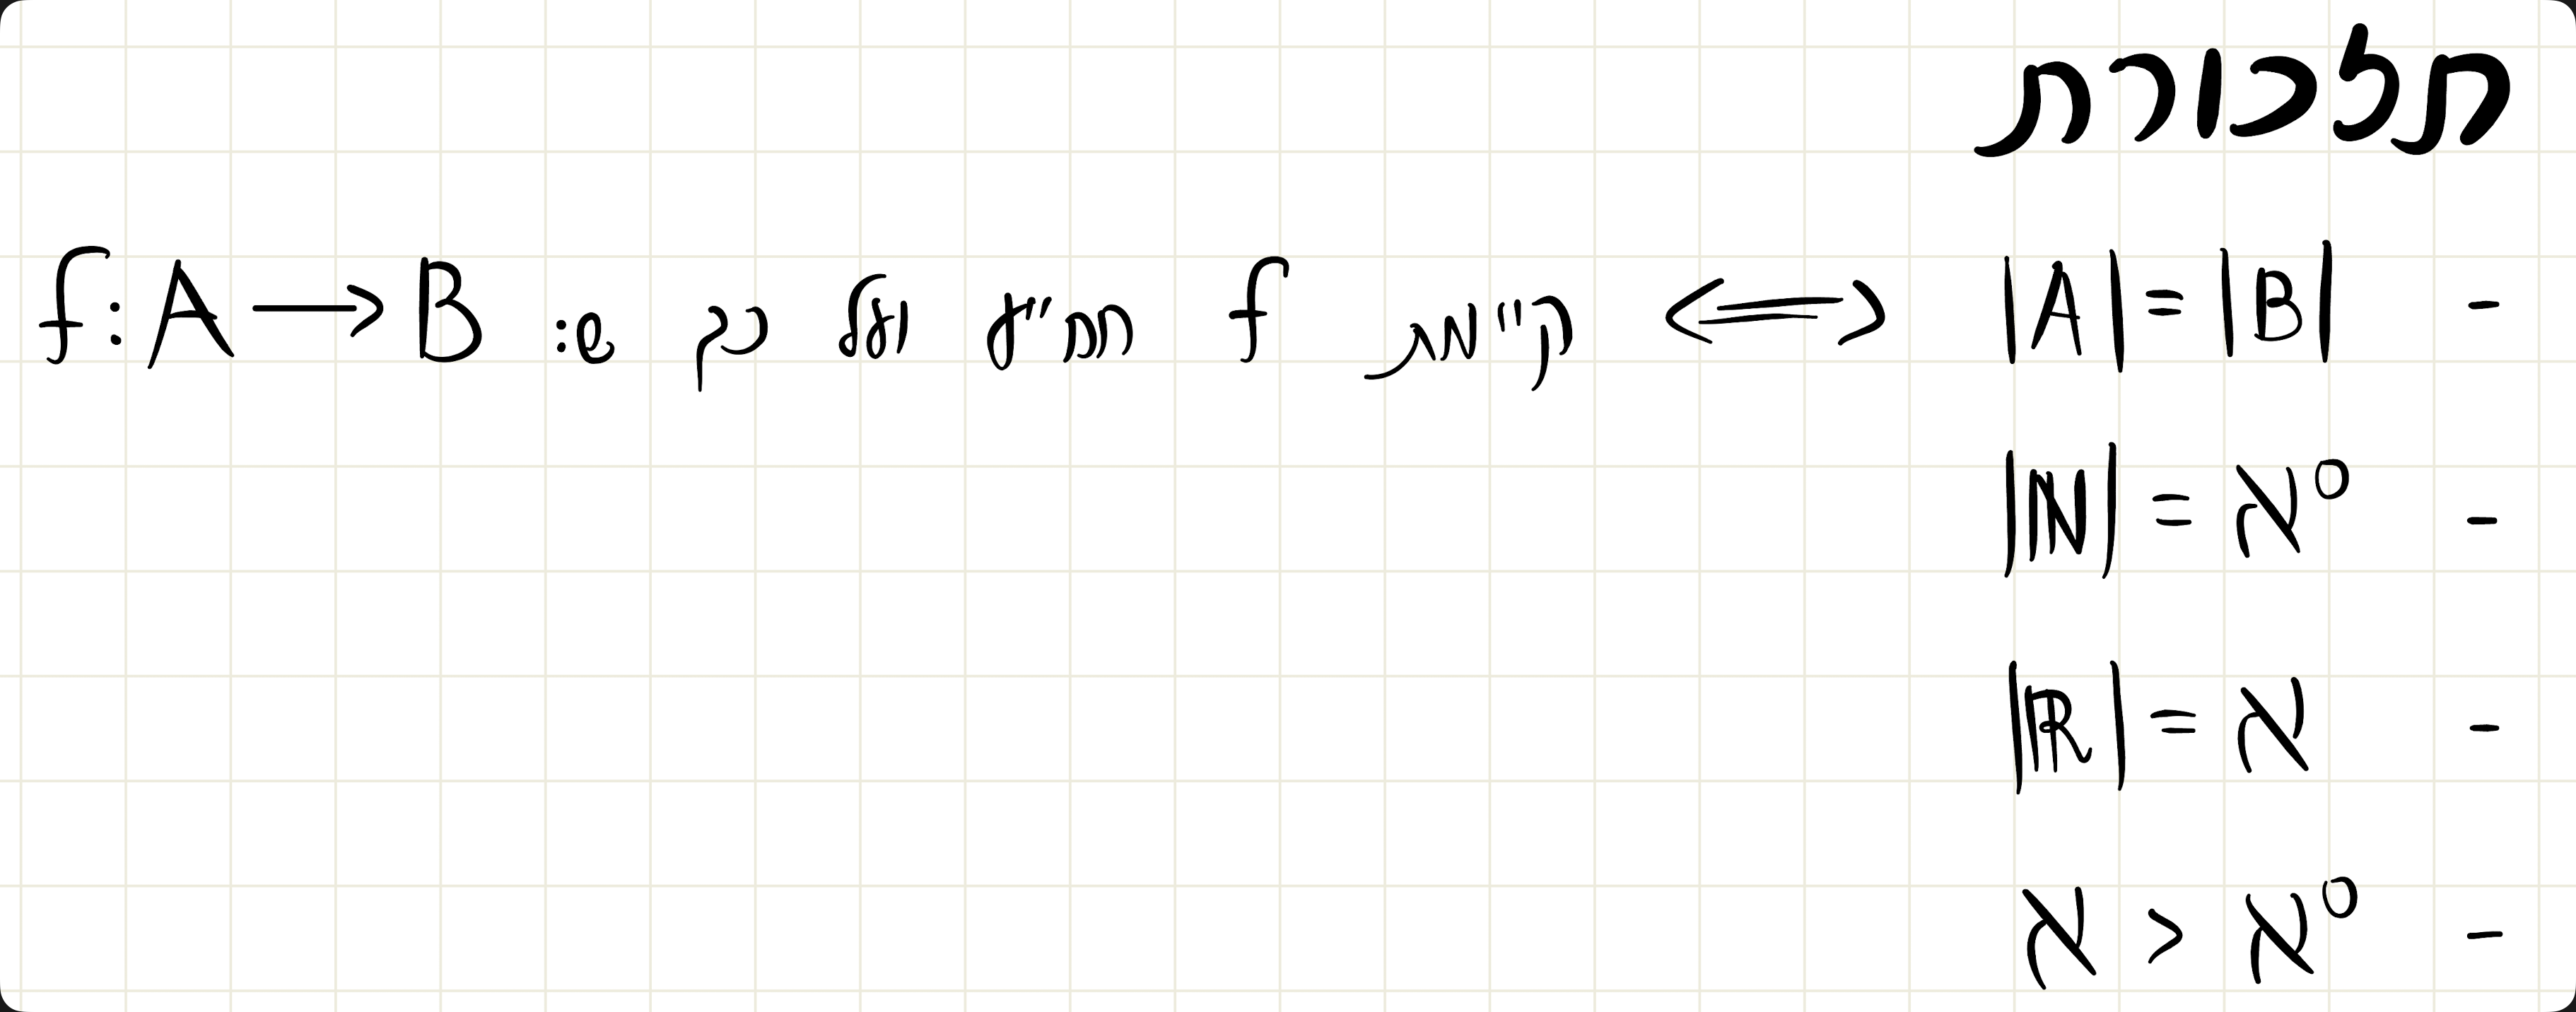 תזכורת
- |A| = |B| ⟺ קיימת f חח״ע ועל כך ש: f: A → B
- |ℕ| = א⁰
- |ℝ| = א
- א > א⁰